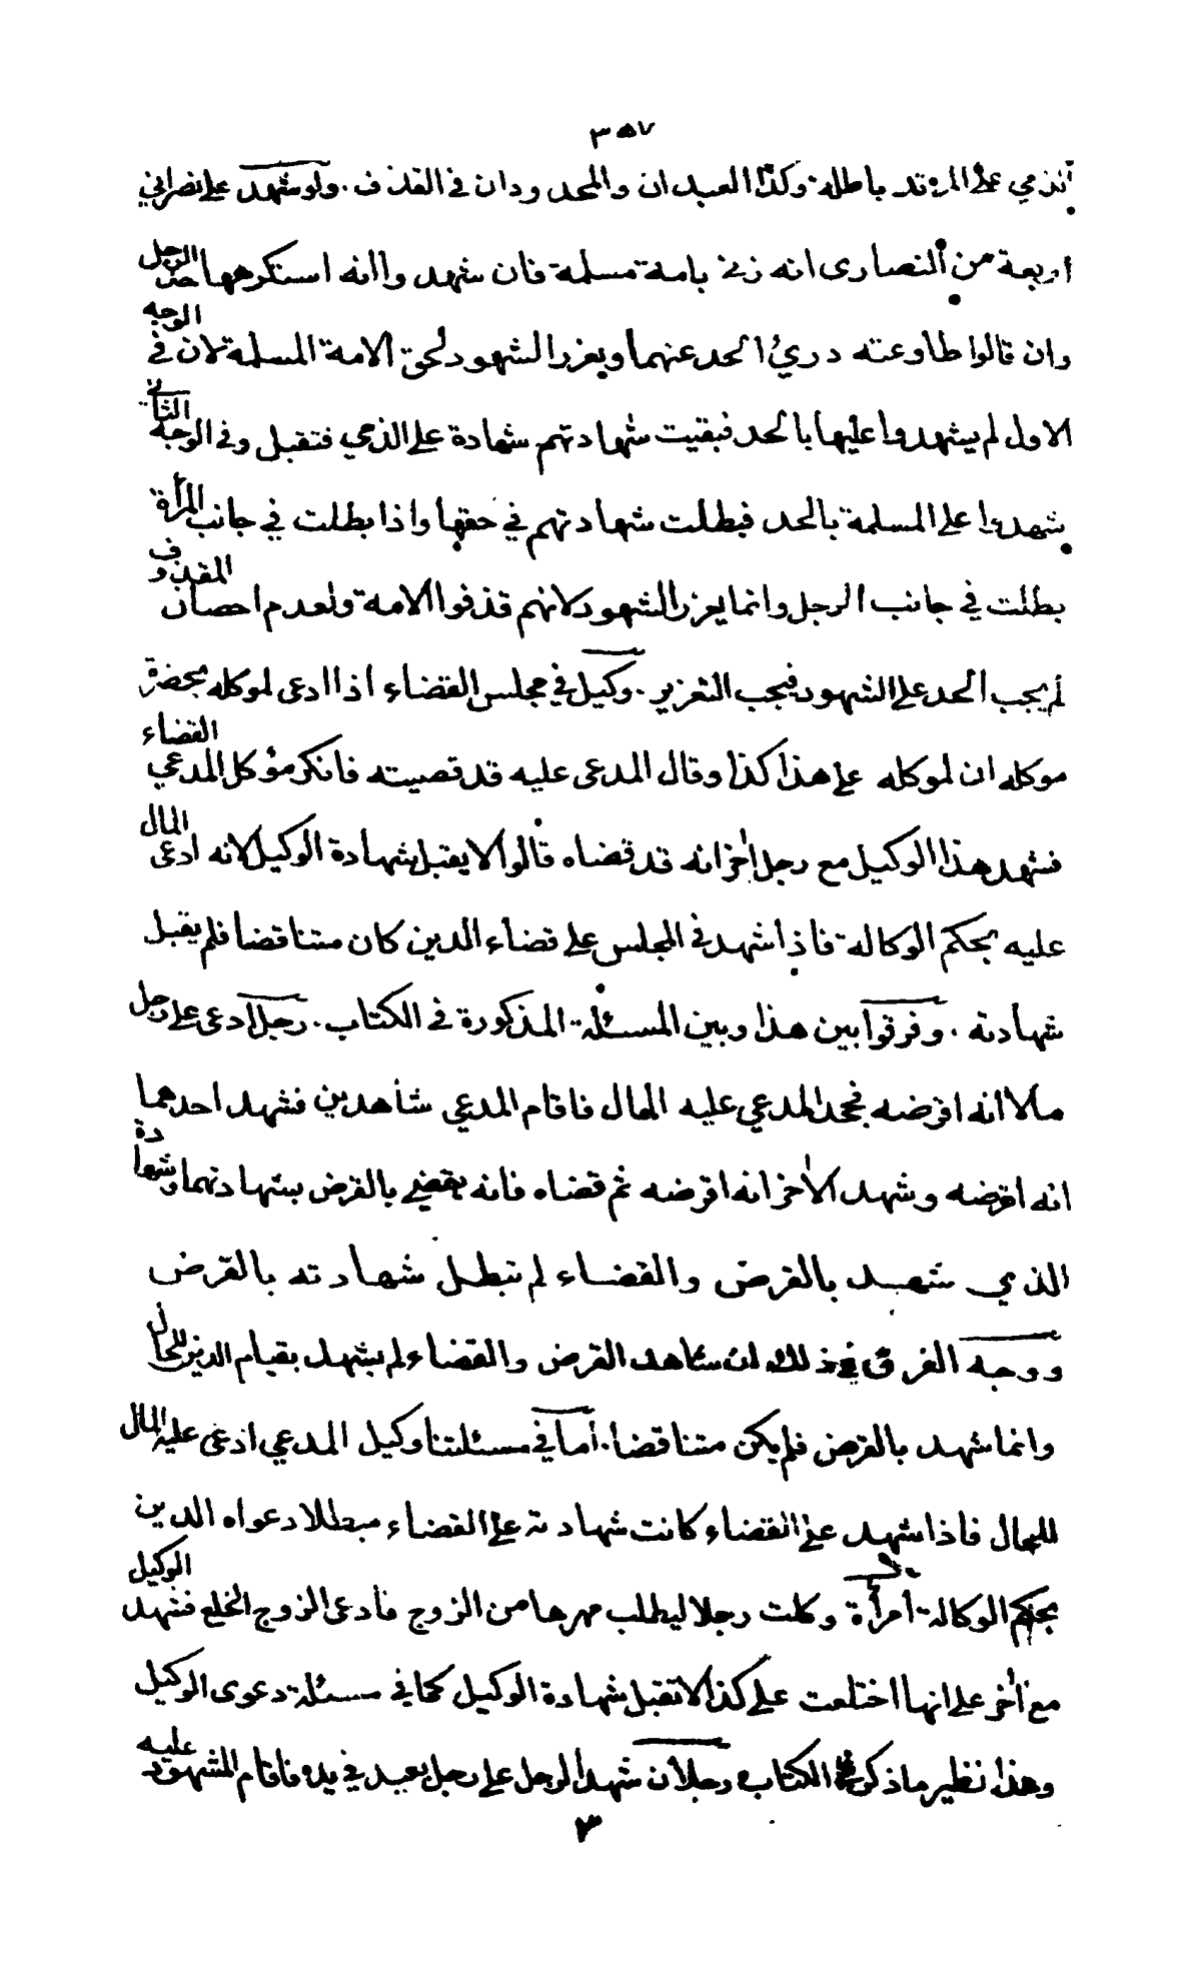 ٣٥٧
الذمي على المرتد باطلة. وكذا العبدان والمحدودان في القذف. ولو شهد على نصراني
اربعة من النصارى انه زنى بامة مسلمة فان شهدوا انه استكرهها حد الرجل
وان قالوا طاوعته درئ الحد عنهما ويعزر الشهود لحق الامة المسلمة لان في الوجه
الاول لم يشهدوا عليها بالحد فبقيت شهادتهم شهادة على الذمي فتقبل وفي الوجه الثاني
شهدوا على المسلمة بالحد فبطلت شهادتهم في حقها واذا بطلت في جانب المرأة
بطلت في جانب الرجل وانما يعزر الشهود لانهم قذفوا الامة ولعدم احصان المقذوف
لم يجب الحد على الشهود فيجب التعزير. وكيل في مجلس القضاء اذا ادعى لموكله بحضرة
موكله ان لموكله على هذا كذا وقال المدعى عليه قد قضيته فانكر موكل المدعي القضاء
فشهد هذا الوكيل مع رجل اخر انه قد قضاه قالوا لا يقبل شهادة الوكيل لانه ادعى المال
عليه بحكم الوكالة فاذا شهد في المجلس على قضاء الدين كان متناقضا فلم يقبل
شهادته. وفرقوا بين هذا وبين المسئلة المذكورة في الكتاب. رجل ادعى على رجل
مالا انه اقرضه فجحد المدعي عليه المال فاقام المدعي شاهدين فشهد احدهما
انه اقرضه وشهد الاخر انه اقرضه ثم قضاه فانه يقضي بالقرض بشهادتهما وشهادة
الذي شهد بالقرض والقضاء لم تبطل شهادته بالقرض
ووجه الفرق في ذلك ان شاهد القرض والقضاء لم يشهد بقيام الدين للحال
وانما شهد بالقرض فلم يكن متناقضا. أما في مسئلتنا وكيل المدعي ادعى عليه المال
للحال فاذا شهد على القضاء كانت شهادته على القضاء مبطلا دعواه الدين
بحكم الوكالة. امرأة وكلت رجلا ليطلب مهرها من الزوج فادعى الزوج الخلع فشهد الوكيل
مع اخر على انها اختلعت على كذا لا تقبل شهادة الوكيل كما في مسئلة دعوى الوكيل
وهذا نظير ما ذكر في الكتاب رجلان شهدا لرجل على رجل بعبد في يده فاقام المشهود عليه
٣